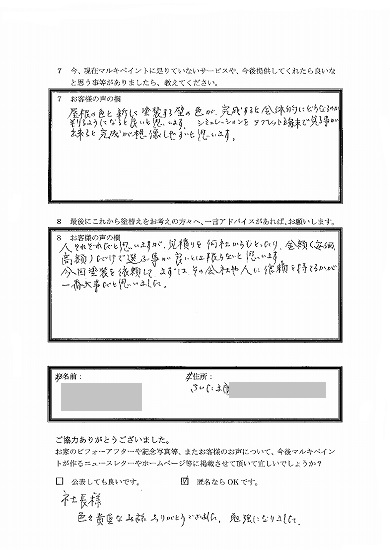 7 今、現在マルキペイントに足りていないサービスや、今後提供してくれたら良いな
と思う事等がありましたら、教えてください。
7 お客様の声の欄
屋根の色と新しく塗装する壁の色が、完成すると全体的にどうなるのか
判るようになると良いと思います。シミュレーションをタブレット端末で見る事が
出来ると完成が想像しやすいと思います。
8 最後にこれから塗替えをお考えの方々へ、一言アドバイスがあれば、お願いします。
8 お客様の声の欄
人それぞれだと思いますが、見積りを何社からもとったり、金額(安価、
高額)だけで選ぶ事が良いとは限らないと思います
今回塗装を依頼して まずは その会社や人に信頼を持てるかが
一番大事だと思いました。
お名前:
ご住所:
さいたま市
ご協力ありがとうございました。
お家のビフォーアフターや記念写真等、またお客様のお声について、今後マルキペイン
トが作るニュースレターやホームページ等に掲載させて頂いて宜しいでしょうか?
□ 公表しても良いです。 ☑ 匿名ならOKです。
社長様
色々貴重なお話ありがとうございました。勉強になりました。